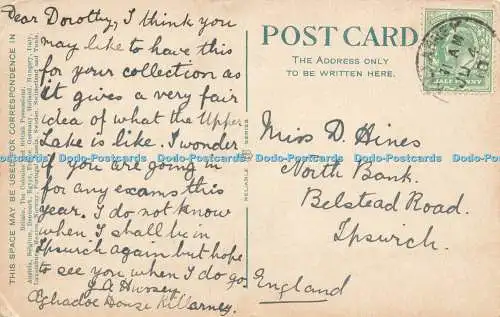 Dear Dorothy, I think you
may like to have this
for your collection as
it gives a very fair
idea of what the Upper
Lake is like. I wonder
if you are going in
for any exams this
year. I do not know
when I shall be in
Ipswich again but hope
to see you when I do go.
J A Hussey
Aghadoe House Killarney.
POST CARD
THE ADDRESS ONLY
TO BE WRITTEN HERE.
Miss D. Hines
North Bank.
Belstead Road.
Ipswich.
England
THIS SPACE MAY BE USED FOR CORRESPONDENCE IN
RELIABLE SERIES
Dodo-Postcards Dodo-Postcards Dodo-Postcards Dodo-Postcards Dodo-Postcards